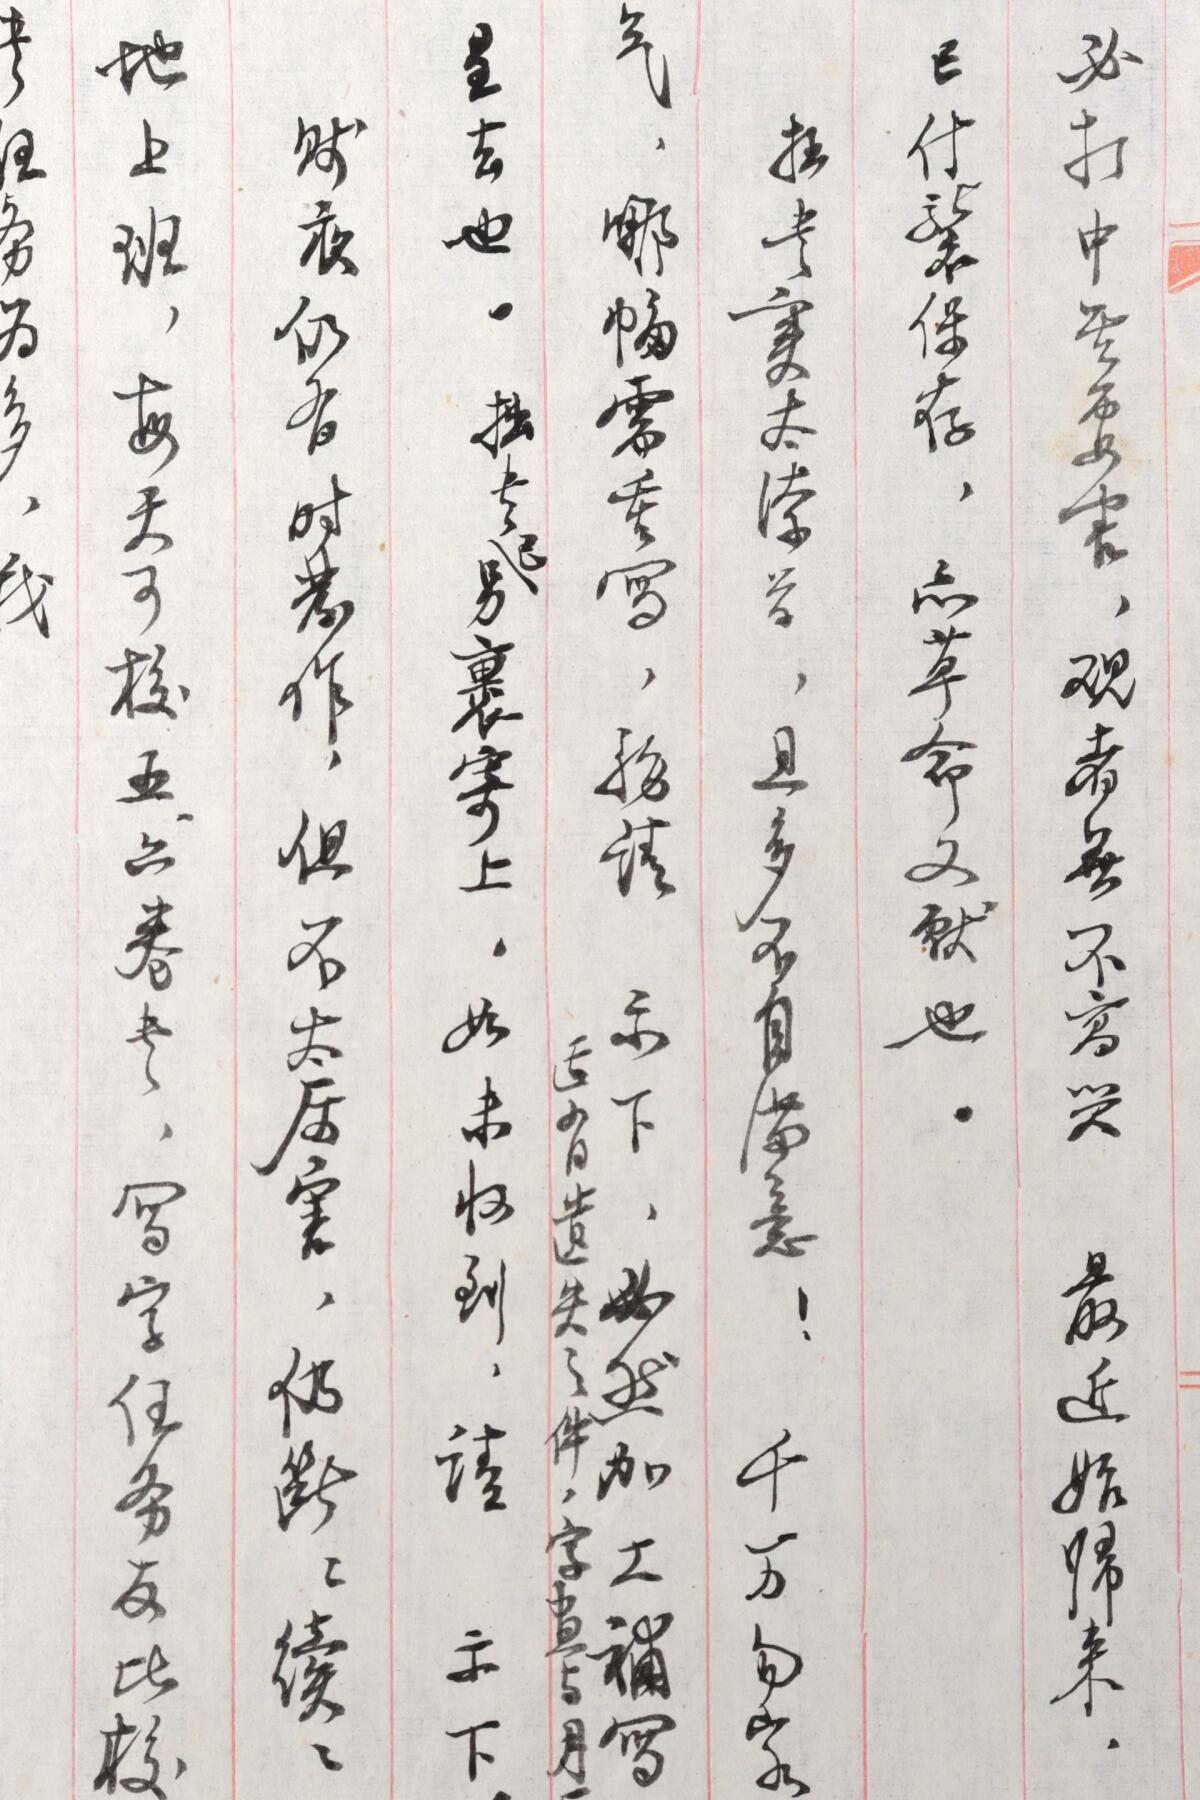 必打中其要害，观者无不高哭 最近始归来，
已付袭保存，亦革命文献也。
拙书实太潦草，且多不自满意！千万勿客
气，哪幅需重写，务请 示下，必然加工补写
正有遗失之件，字画与月
呈去也。拙书已另裹寄上，如未收到，请 示下，
贱疾仍有时发作，但不太厉害，仍断〻续〻
地上班，每天可校五六卷书，写字任务反比校
书任务为多，我